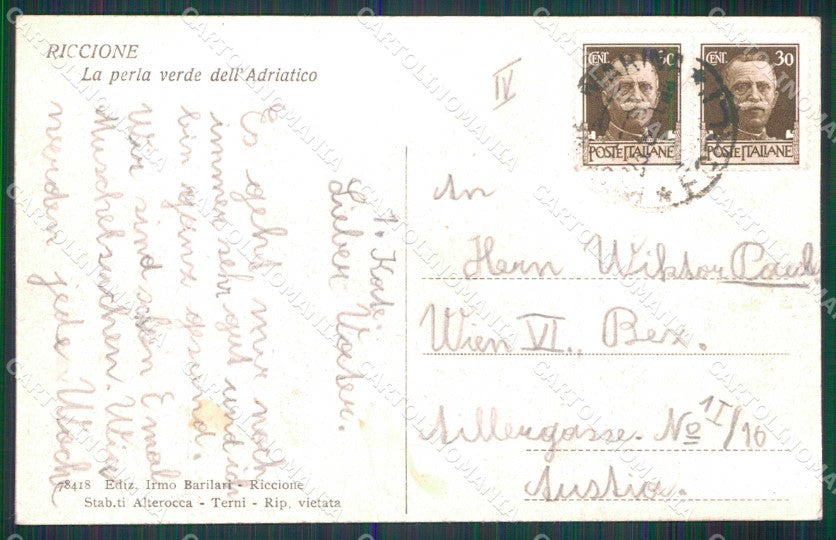 RICCIONE
La perla verde dell'Adriatico
CENT. 30
POSTE ITALIANE
CENT. 30
POSTE ITALIANE
IV
Lieber Vater.
Es geht mir noch
immer sehr gut und ich
bin ganz gesund.
Wir sind schon 5 mal
Muschelsuchen. Wir
werden jede Woche
An
Herrn Wiktor
Wien VI., Bez.
No 1I/16
Austria.
78418 Ediz. Irmo Barilari - Riccione
Stab.ti Alterocca - Terni - Rip. vietata
CARTOLINOMANIA